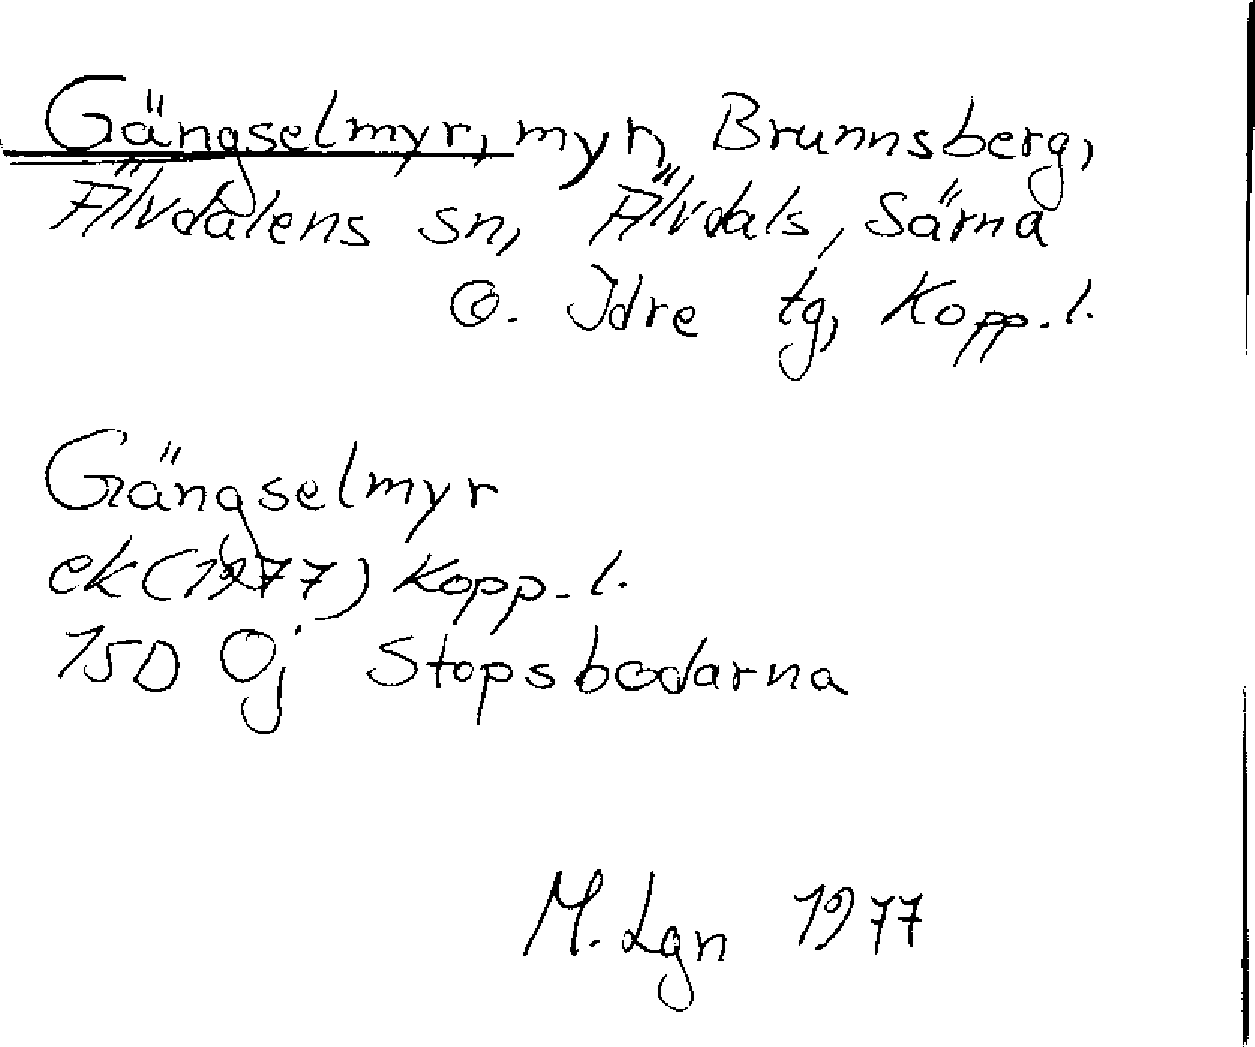 Gängselmyr, myr, Brunnsberg,
Älvdalens sn, Älvdals, Särna
o. Idre tg, Kopp. l.
Gängselmyr
ek (1977) Kopp. l.
15D 0j Stopsbodarna
M. Lgn 1977